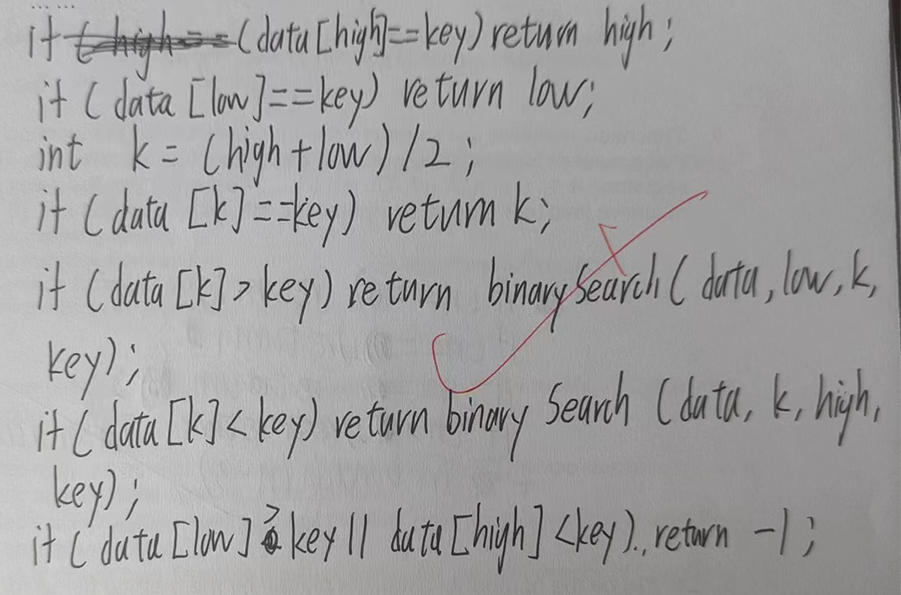 ......
if (data[high]==key) return high;
if (data [low]==key) return low;
int k = (high+low)/2;
if (data [k]==key) return k;
if (data [k]>key) return binarySearch(data, low, k,
key);
if (data [k]<key) return binary Search (data, k, high,
key);
if (data [low]>key || data [high]<key) return -1;